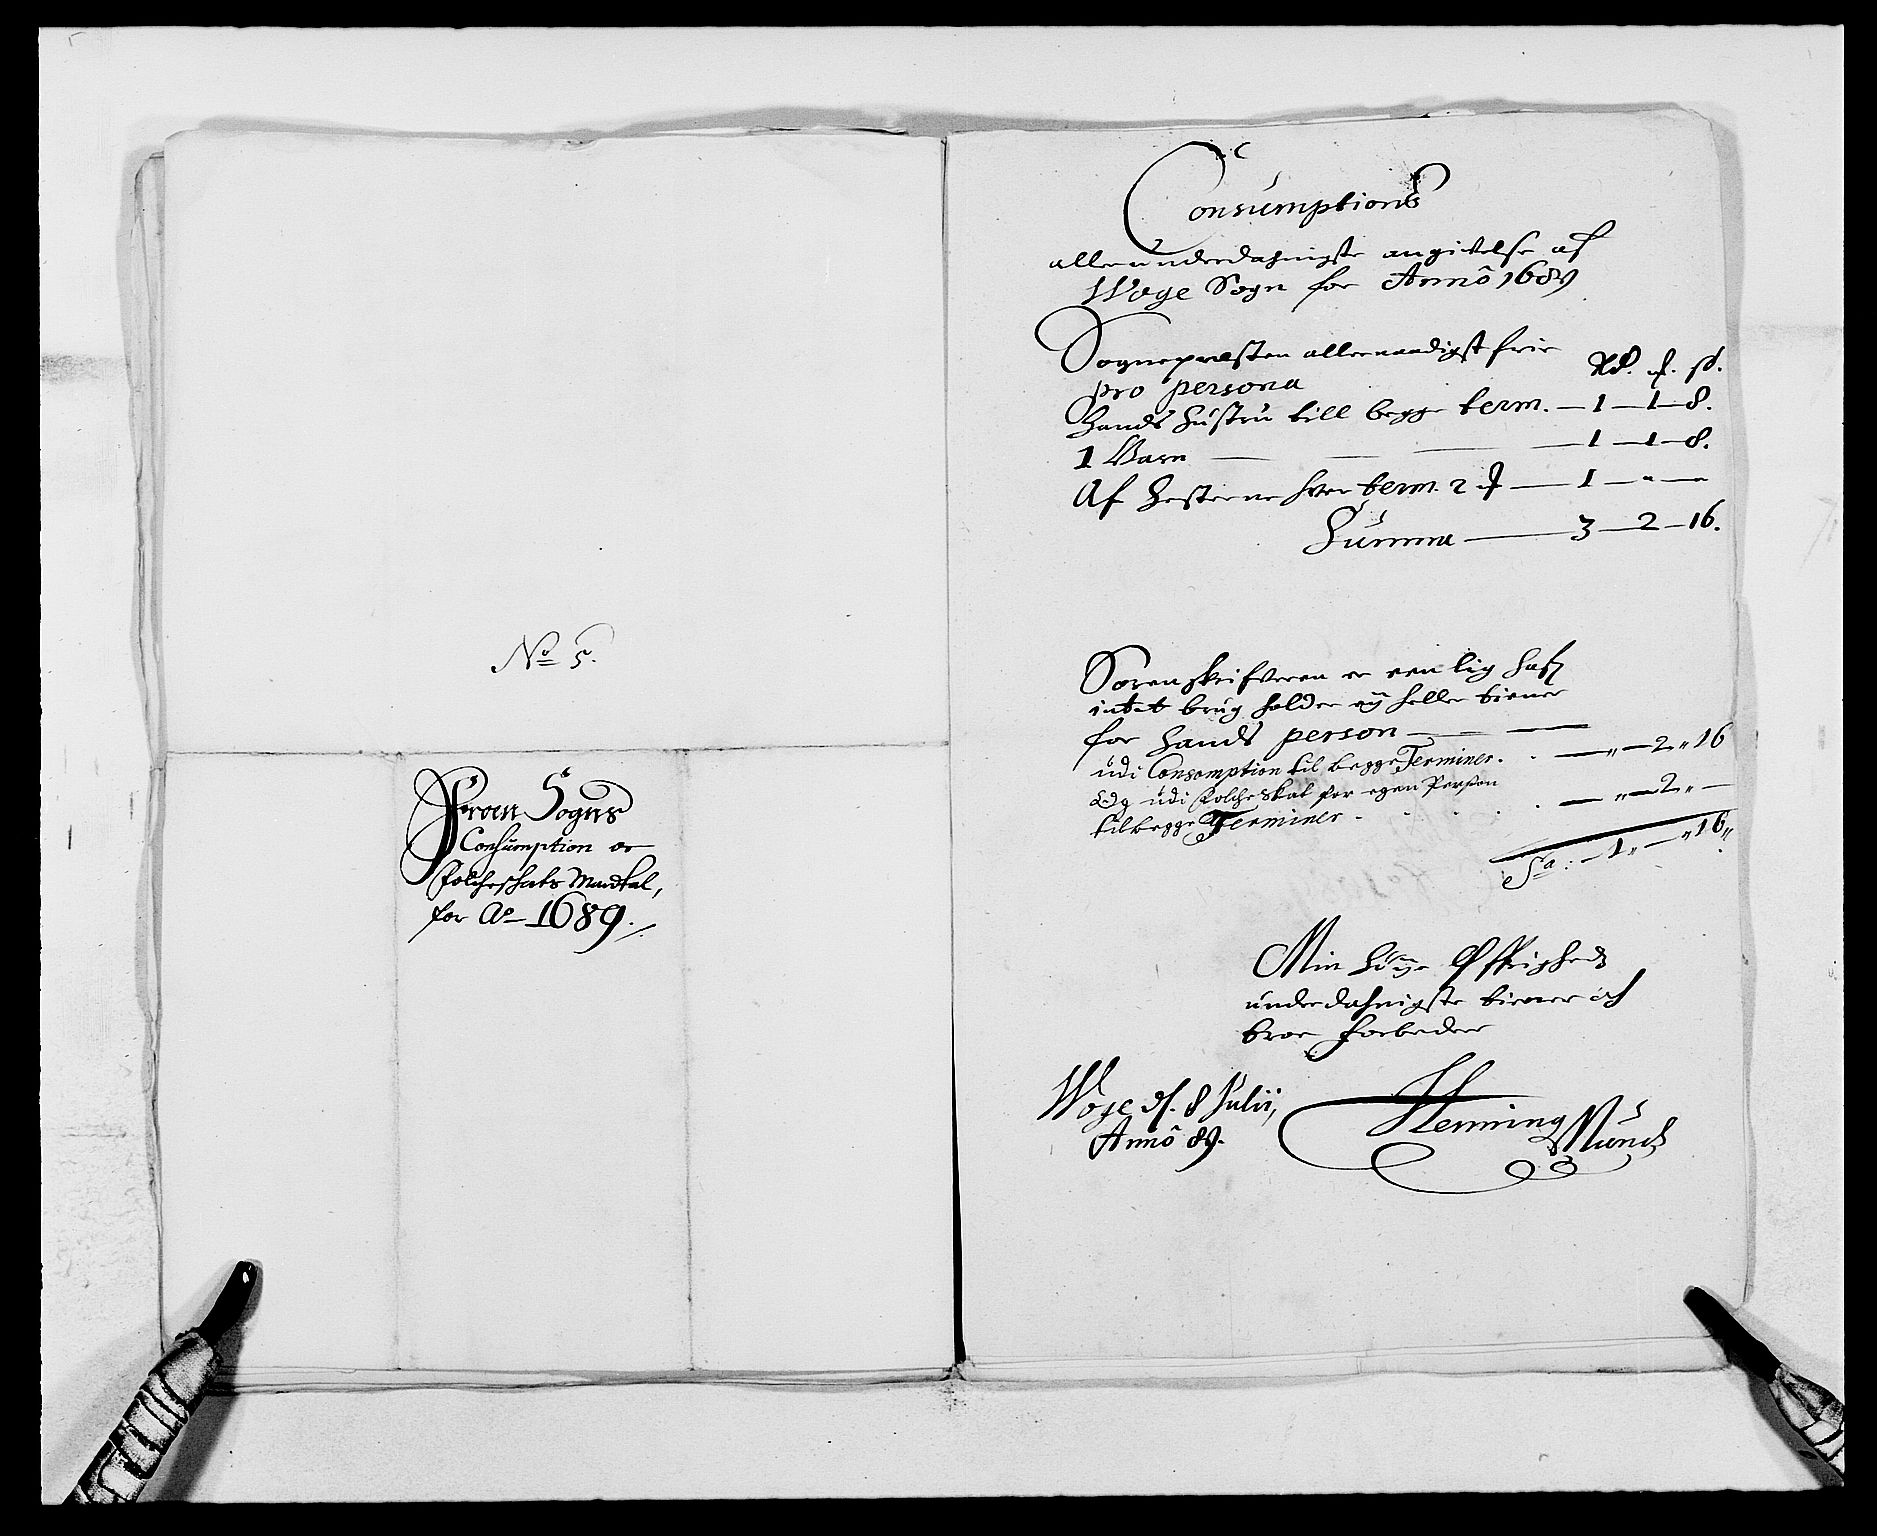 No 5.
Froen Sogns
Consumption oc
Folcheschats Mandtal,
for Ao 1689.
Consumptions
allerunderdahnigste angivelse af
Woge Sogn for Annô 1689
Sognepræsten allernaadigst frie
pro persona Rd. ƒ. sk.
Hands Hustru till begge term. — 1 — 1 — 8.
1 Barn — 1 — 1 — 8.
Af Hesterne hver term. 2 ƒ — 1 — " — "
Summa — 3 — 2 — 16.
Sorenskrifveren er een lig
intet brug holder eÿ heller tiener
for hands person —
udi Consomption til begge Terminer. — " — 2 " 16
Og udi Folche Skat for egen Persson
til begge Terminer — " — 2 " —
Sa: — 1 " — " 16 "
Min Høÿe Øfrigheds
underdahnigste tiener och
troe forbeder
Woge d. 8 Julii,
Annô 89.
Henning Munch